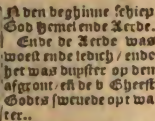 N den beghinne schiep
God Hemel ende Aerde.
Ende de Aerde was
woest ende ledich / ende
het was duyster op den
afgront / en̄ de Gheest
Godts sweuede opt wa
ter..